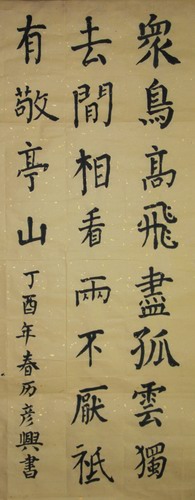 眾鳥高飛盡孤雲獨
去閒相看兩不厭祗
有敬亭山
丁酉年春历彦興書